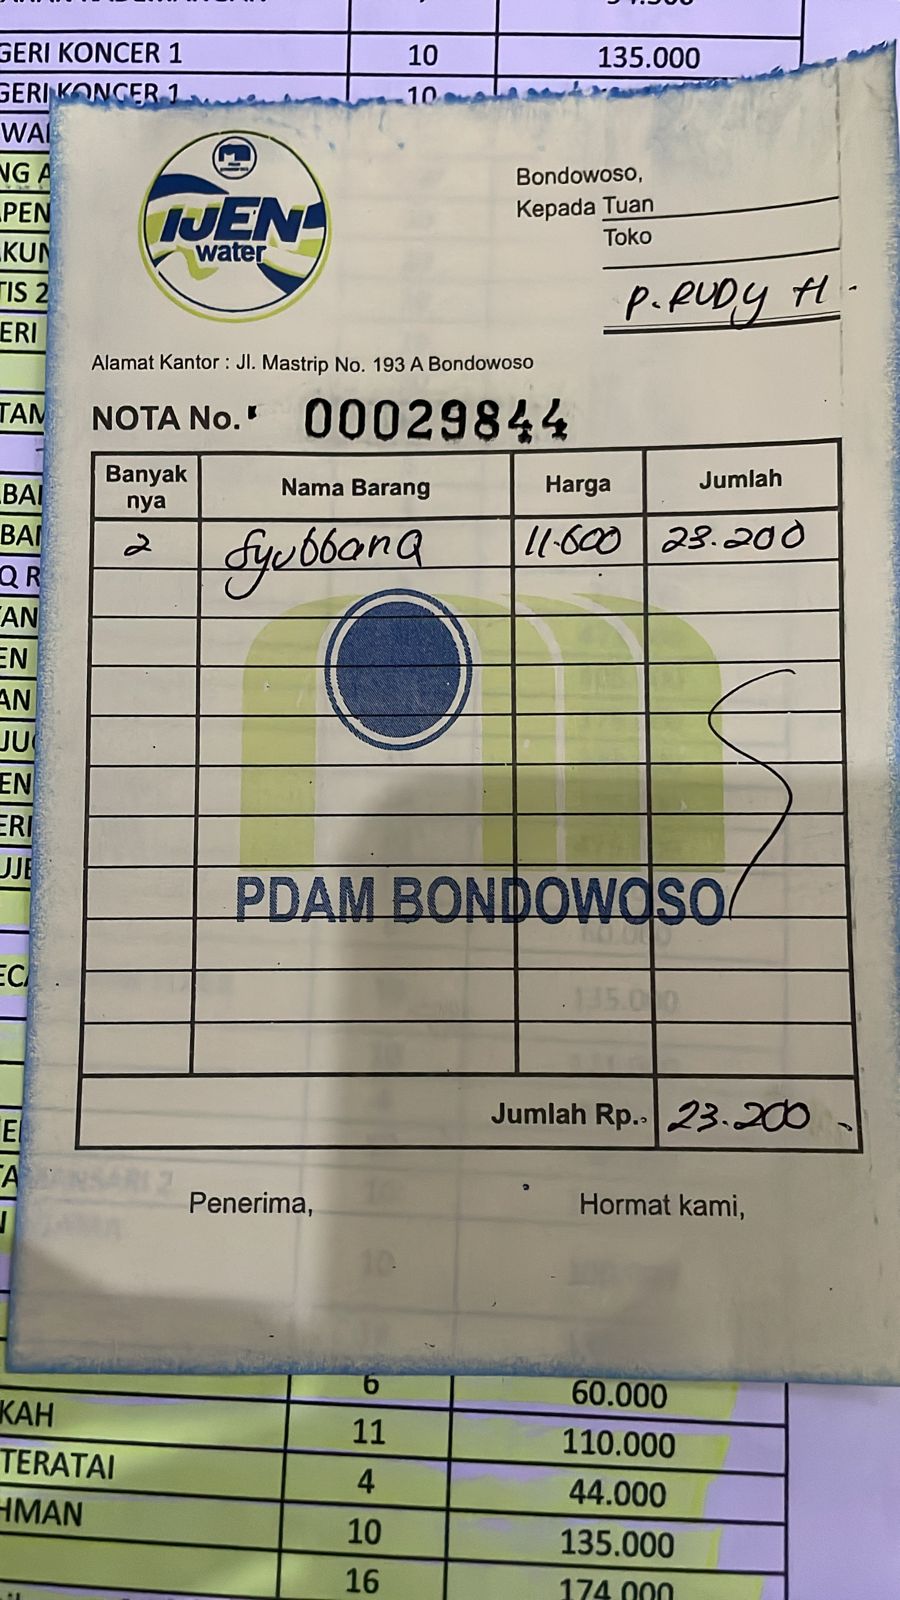 GERI KONCER 1 10 135.000
GERI KONCER 1 10
IJEN
water
Bondowoso,
Kepada Tuan
Toko
P. RUDY H
Alamat Kantor : Jl. Mastrip No. 193 A Bondowoso
NOTA No. 00029844
Banyak nya Nama Barang Harga Jumlah
2 Syubbana 11.600 23.200
PDAM BONDOWOSO
Jumlah Rp. 23.200
Penerima, Hormat kami,
6 60.000
KAH 11 110.000
TERATAI 4 44.000
HMAN 10 135.000
16 174.000